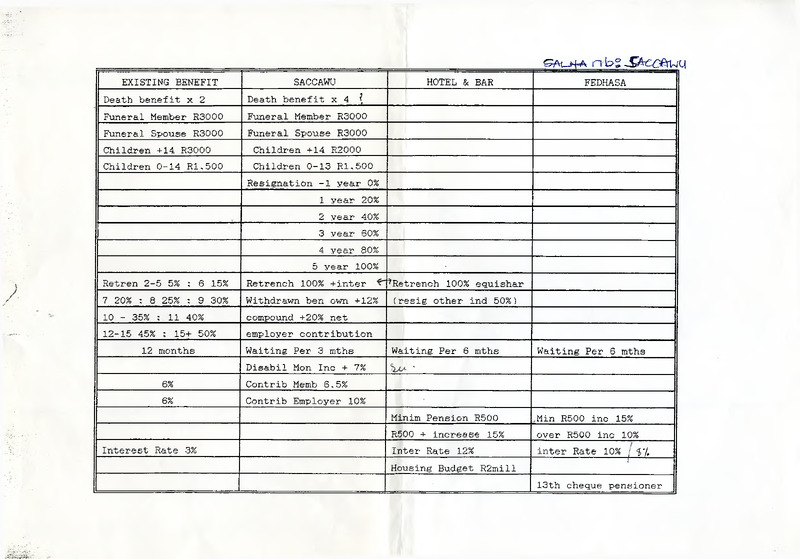 SACCAWU
EXISTING BENEFIT SACCAWU HOTEL & BAR FEDHASA
Death benefit x 2 Death benefit x 4
Funeral Member R3000 Funeral Member R3000
Funeral Spouse R3000 Funeral Spouse R3000
Children +14 R3000 Children +14 R2000
Children 0-14 R1.500 Children 0-13 R1.500
Resignation -1 year 0%
1 year 20%
2 year 40%
3 year 60%
4 year 80%
5 year 100%
Retren 2-5 5% : 6 15% Retrench 100% +inter Retrench 100% equishar
7 20% : 8 25% : 9 30% Withdrawn ben own +12% (resig other ind 50%)
10 - 35% : 11 40% compound +20% net
12-15 45% : 15+ 50% employer contribution
12 months Waiting Per 3 mths Waiting Per 6 mths Waiting Per 6 mths
Disabil Mon Inc + 7%
6% Contrib Memb 6.5%
6% Contrib Employer 10%
Minim Pension R500 Min R500 inc 15%
R500 + increase 15% over R500 inc 10%
Interest Rate 3% Inter Rate 12% inter Rate 10%
Housing Budget R2mill
13th cheque pensioner